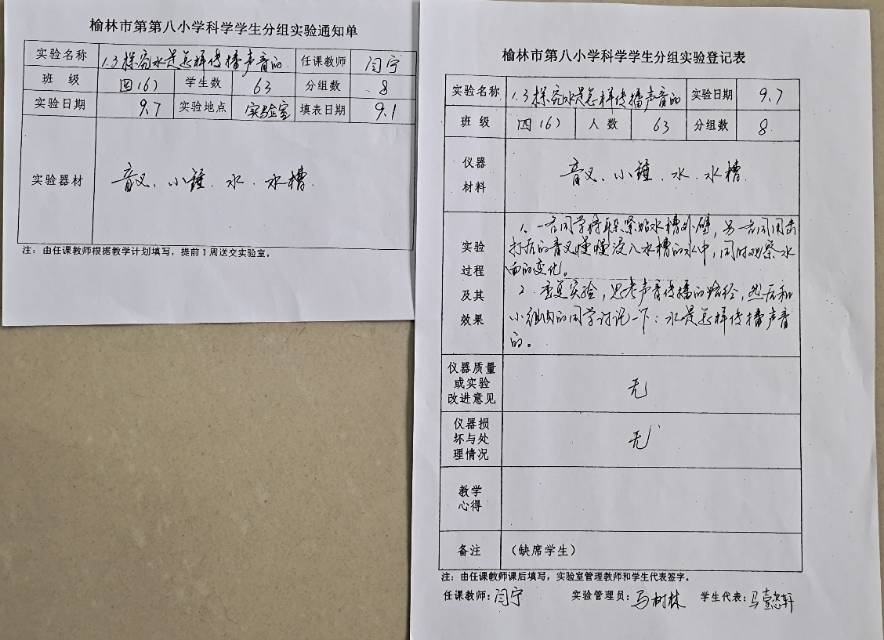 榆林市第第八小学科学学生分组实验通知单
实验名称 1.3探究水是怎样传播声音的 任课教师 闫宁
班 级 四(6) 学生数 63 分组数 8
实验日期 9.7 实验地点 实验室 填表日期 9.1
实验器材 音叉、小锤、水、水槽.
注：由任课教师根据教学计划填写，提前1周送交实验室。
榆林市第八小学科学学生分组实验登记表
实验名称 1.3探究水是怎样传播声音的 实验日期 9.7
班 级 四(6) 人 数 63 分组数 8
仪器
材料
音叉、小锤、水、水槽.
实验
过程
及其
效果
1、一名同学将耳朵紧贴水槽外壁，另一名同学用击
打后的音叉慢慢浸入水槽的水中，同时观察水
面的变化。
2、重复实验，思考声音传播的路径，然后和
小组内的同学讨论一下：水是怎样传播声音
的。
仪器质量
或实验
改进意见
无
仪器损
坏与处
理情况
无
教学
心得
备注 （缺席学生）
注：由任课教师课后填写，实验室管理教师和学生代表签字。
任课教师：闫宁 实验管理员：马树林 学生代表：马 轩